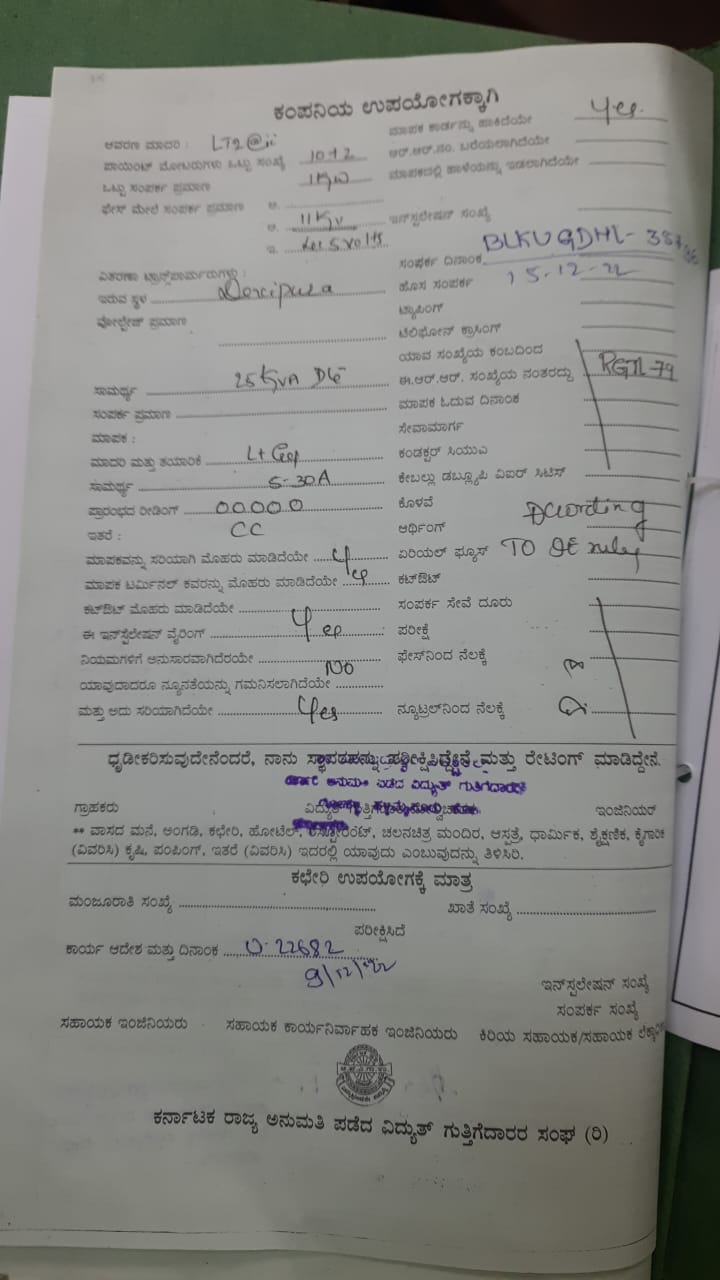 ಕಂಪನಿಯ ಉಪಯೋಗಕ್ಕಾಗಿ
ಆವರಣ ಮಾದರಿ : LT2@ii
ಮಾಪಕ ಕಾರ್ಡನ್ನು ಹಾಕಿದೆಯೇ Yes.
ಪಾಯಿಂಟ್ ಮೋಟರುಗಳು ಒಟ್ಟು ಸಂಖ್ಯೆ 10+2
ಆರ್.ಆರ್.ನಂ. ಬರೆಯಲಾಗಿದೆಯೇ
ಒಟ್ಟು ಸಂಪರ್ಕ ಪ್ರಮಾಣ 1KW
ಮಾಪಕದಲ್ಲಿ ಹಾಳೆಯನ್ನು ಇಡಲಾಗಿದೆಯೇ
ಫೇಸ್ ಮೇಲೆ ಸಂಪರ್ಕ ಪ್ರಮಾಣ ಅ.
ಆ. 11KV
ಇನ್‌ಸ್ಟಲೇಷನ್ ಸಂಖ್ಯೆ
ಇ. volts
BLKUGDHL-
ಸಂಪರ್ಕ ದಿನಾಂಕ 15-12-22
ವಿತರಣಾ ಟ್ರಾನ್ಸ್‌ಫಾರ್ಮರುಗಳು :
ಇರುವ ಸ್ಥಳ
ಹೊಸ ಸಂಪರ್ಕ
ವೋಲ್ಟೇಜ್ ಪ್ರಮಾಣ
ಟ್ಯಾಪಿಂಗ್
ಟೆಲಿಫೋನ್ ಕ್ರಾಸಿಂಗ್
ಯಾವ ಸಂಖ್ಯೆಯ ಕಂಬದಿಂದ
ಸಾಮರ್ಥ್ಯ 25 KVA
ಈ.ಆರ್.ಆರ್. ಸಂಖ್ಯೆಯ ನಂತರದ್ದು RGTL-79
ಸಂಪರ್ಕ ಪ್ರಮಾಣ
ಮಾಪಕ ಓದುವ ದಿನಾಂಕ
ಮಾಪಕ :
ಸೇವಾಮಾರ್ಗ
ಮಾದರಿ ಮತ್ತು ತಯಾರಿಕೆ L+
ಕಂಡಕ್ಟರ್ ಸಿಯುಎ
ಸಾಮರ್ಥ್ಯ 5-30A
ಕೇಬಲ್ಲು ಡಬ್ಲ್ಯೂಪಿ ವಿಐರ್ ಸಿಟಿಸ್
ಪ್ರಾರಂಭದ ರೀಡಿಂಗ್ 00000
ಕೊಳವೆ
ಇತರೆ : CC
ಆರ್ಥಿಂಗ್
ಮಾಪಕವನ್ನು ಸರಿಯಾಗಿ ಮೊಹರು ಮಾಡಿದೆಯೇ
ಏರಿಯಲ್ ಫ್ಯೂಸ್ TO
ಮಾಪಕ ಟರ್ಮಿನಲ್ ಕವರನ್ನು ಮೊಹರು ಮಾಡಿದೆಯೇ
ಕಟ್‌ಔಟ್
ಕಟ್‌ಔಟ್ ಮೊಹರು ಮಾಡಿದೆಯೇ
ಸಂಪರ್ಕ ಸೇವೆ ದೂರು
ಈ ಇನ್‌ಸ್ಟಲೇಷನ್ ವೈರಿಂಗ್ Yes
ಪರೀಕ್ಷೆ
ನಿಯಮಗಳಿಗೆ ಅನುಸಾರವಾಗಿದೆರಯೇ
ಫೇಸ್‌ನಿಂದ ನೆಲಕ್ಕೆ
ಯಾವುದಾದರೂ ನ್ಯೂನತೆಯನ್ನು ಗಮನಿಸಲಾಗಿದೆಯೇ No
ಮತ್ತು ಅದು ಸರಿಯಾಗಿದೆಯೇ Yes
ನ್ಯೂಟ್ರಲ್‌ನಿಂದ ನೆಲಕ್ಕೆ
ಧೃಡೀಕರಿಸುವುದೇನೆಂದರೆ, ನಾನು ಸ್ಥಾವರವನ್ನು ಪರೀಕ್ಷಿಸಿದ್ದೇನೆ ಮತ್ತು ರೇಟಿಂಗ್ ಮಾಡಿದ್ದೇನೆ.
ಅನುಮತಿ ಪಡೆದ ವಿದ್ಯುತ್ ಗುತ್ತಿಗೆದಾರರು
ಗ್ರಾಹಕರು ಇಂಜಿನಿಯರ್
** ವಾಸದ ಮನೆ, ಅಂಗಡಿ, ಕಛೇರಿ, ಹೋಟೆಲ್, ರೆಸ್ಟೋರೆಂಟ್, ಚಲನಚಿತ್ರ ಮಂದಿರ, ಆಸ್ಪತ್ರೆ, ಧಾರ್ಮಿಕ, ಶೈಕ್ಷಣಿಕ, ಕೈಗಾರಿಕ
(ವಿವರಿಸಿ) ಕೃಷಿ, ಪಂಪಿಂಗ್, ಇತರೆ (ವಿವರಿಸಿ) ಇದರಲ್ಲಿ ಯಾವುದು ಎಂಬುವುದನ್ನು ತಿಳಿಸಿರಿ.
ಕಛೇರಿ ಉಪಯೋಗಕ್ಕೆ ಮಾತ್ರ
ಮಂಜೂರಾತಿ ಸಂಖ್ಯೆ ಖಾತೆ ಸಂಖ್ಯೆ
ಪರೀಕ್ಷಿಸಿದೆ
ಕಾರ್ಯ ಆದೇಶ ಮತ್ತು ದಿನಾಂಕ 22682
9/12/22
ಇನ್‌ಸ್ಟಲೇಷನ್ ಸಂಖ್ಯೆ
ಸಂಪರ್ಕ ಸಂಖ್ಯೆ
ಸಹಾಯಕ ಇಂಜಿನಿಯರು ಸಹಾಯಕ ಕಾರ್ಯನಿರ್ವಾಹಕ ಇಂಜಿನಿಯರು ಕಿರಿಯ ಸಹಾಯಕ/ಸಹಾಯಕ
ಕರ್ನಾಟಕ ರಾಜ್ಯ ಅನುಮತಿ ಪಡೆದ ವಿದ್ಯುತ್ ಗುತ್ತಿಗೆದಾರರ ಸಂಘ (ರಿ)